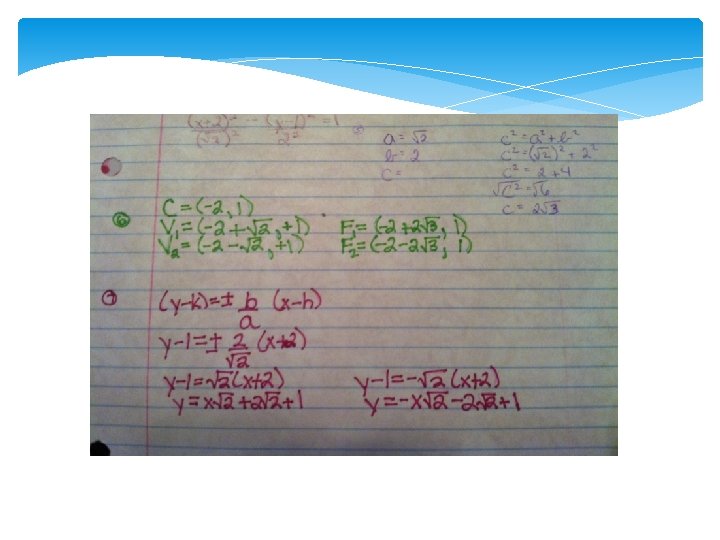 (x+2)² - (y-1)² =1
(√2)² 2²
⑤
a = √2
b = 2
c =
c² = a² + b²
c² = (√2)² + 2²
c² = 2 + 4
√c² = √6
c = 2√3
⑥
C = (-2, 1)
V₁ = (-2 + √2, +1)
V₂ = (-2 - √2, +1)
F₁ = (-2 + 2√3, 1)
F₂ = (-2 - 2√3, 1)
⑦
(y-k) = ± b (x-h)
a
y-1 = ± 2 (x+2)
√2
y-1 = √2 (x+2)
y = x√2 + 2√2 + 1
y-1 = -√2 (x+2)
y = -x√2 - 2√2 + 1